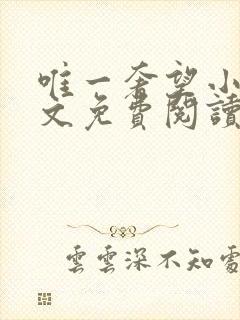 唯一奢望小
文免費閱讀
雲雲深不知處